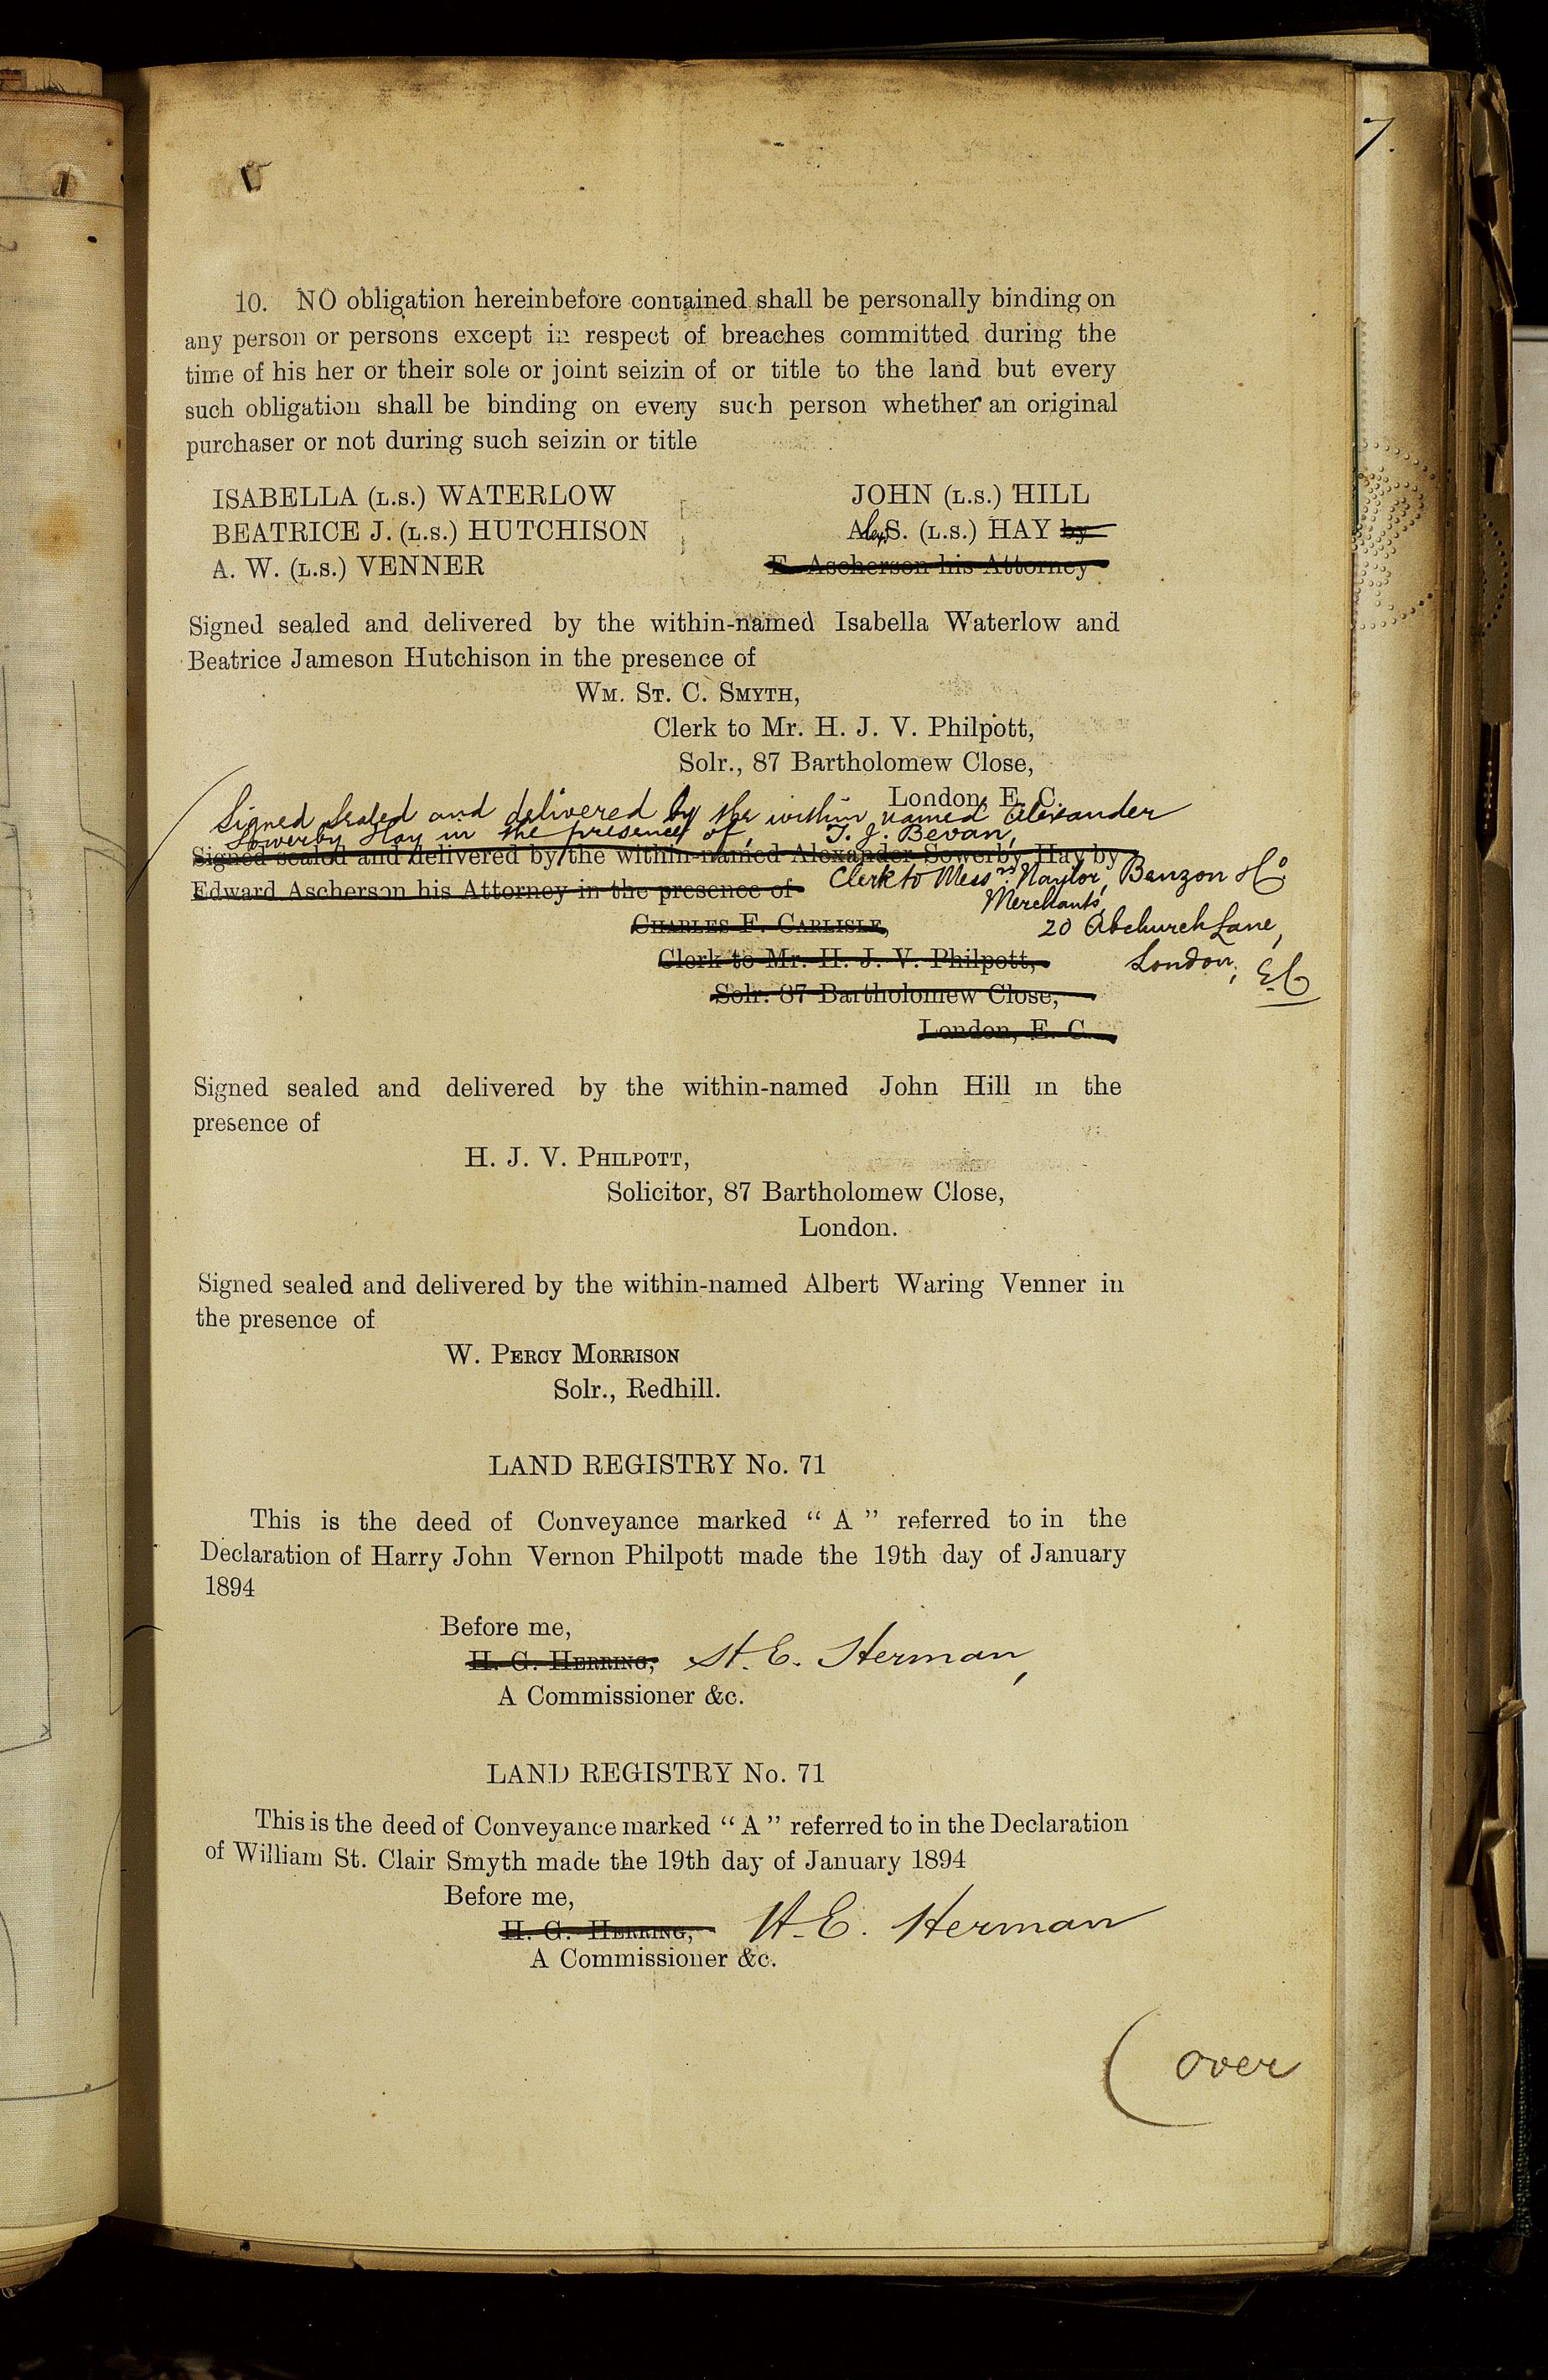 7.
10. NO obligation hereinbefore contained shall be personally binding on
any person or persons except in respect of breaches committed during the
time of his her or their sole or joint seizin of or title to the land but every
such obligation shall be binding on every such person whether an original
purchaser or not during such seizin or title
ISABELLA (L.S.) WATERLOW
BEATRICE J. (L.S.) HUTCHISON
A. W. (L.S.) VENNER
JOHN (L.S.) HILL
Alexr S. (L.S.) HAY by
E. Ascherson his Attorney
Signed sealed and delivered by the within-named Isabella Waterlow and
Beatrice Jameson Hutchison in the presence of
WM. ST. C. SMYTH,
Clerk to Mr. H. J. V. Philpott,
Solr., 87 Bartholomew Close,
London, E. C.
Signed Sealed and delivered by the within named Alexander
Sowerby Hay in the presence of, T. J. Bevan,
Signed sealed and delivered by the within-named Alexander Sowerby Hay by
Clerk to Messrs. Naylor, Benzon & Co.
Edward Ascherson his Attorney in the presence of
Merchants,
CHARLES F. CARLISLE,
20 Abchurch Lane,
Clerk to Mr. H. J. V. Philpott,
London, E.C
Solr. 87 Bartholomew Close,
London, E. C.
Signed sealed and delivered by the within-named John Hill in the
presence of
H. J. V. PHILPOTT,
Solicitor, 87 Bartholomew Close,
London.
Signed sealed and delivered by the within-named Albert Waring Venner in
the presence of
W. PERCY MORRISON
Solr., Redhill.
LAND REGISTRY No. 71
This is the deed of Conveyance marked “ A ” referred to in the
Declaration of Harry John Vernon Philpott made the 19th day of January
1894
Before me,
H. G. HERRING, H. E. Herman,
A Commissioner &c.
LAND REGISTRY No. 71
This is the deed of Conveyance marked “ A ” referred to in the Declaration
of William St. Clair Smyth made the 19th day of January 1894
Before me,
H. G. HERRING, H. E. Herman
A Commissioner &c.
(over